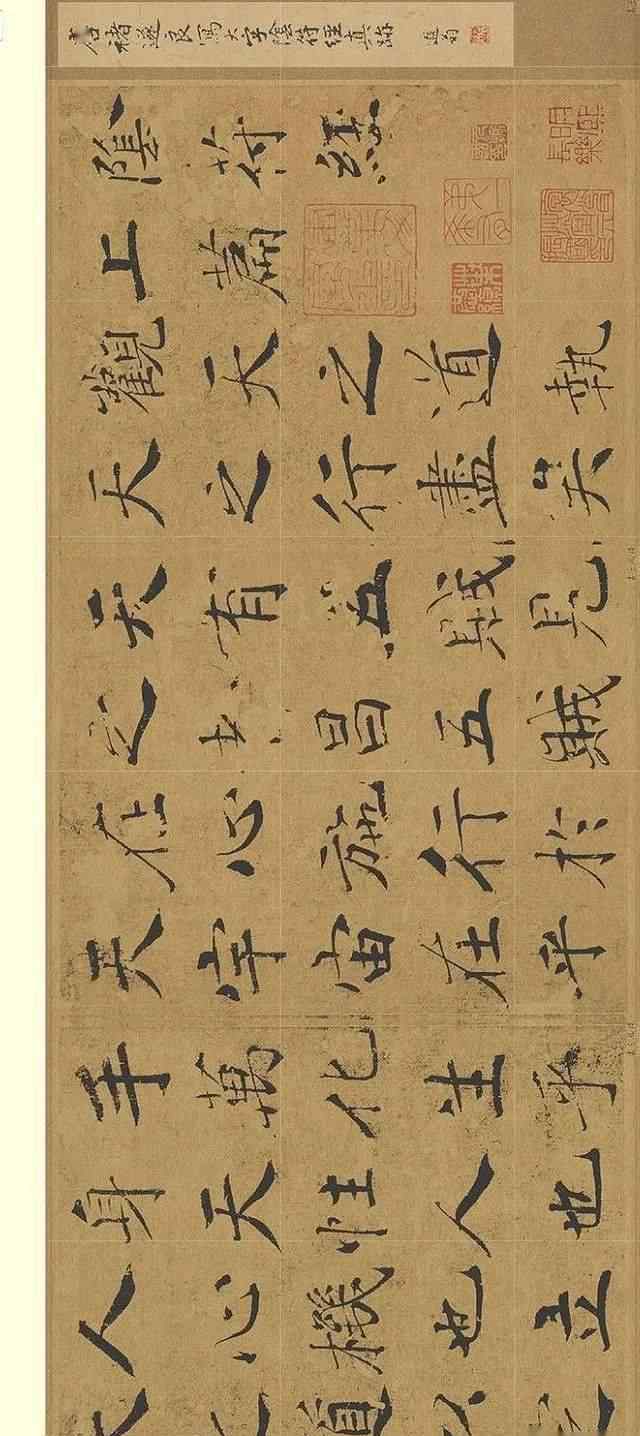 唐褚遂良寫大字陰符經真跡
陰符經
上篇
觀天之道執
天之行盡矣
天有五賊見
之者昌五賊
在心施行於
天宇宙在乎
手萬化生乎
身天性人也
人心機也立
天之道以定